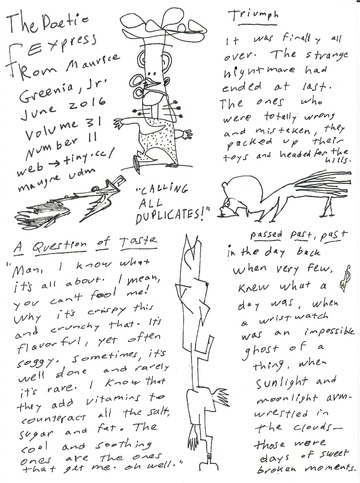 The Poetic
Express
From Maurice
Greenia, Jr.
June 2016
Volume 31
Number 11
web → tiny.cc/
maugre udm
"CALLING
ALL
DUPLICATES!"
Triumph
It was finally all
over. The strange
nightmare had
ended at last.
The ones who
were totally wrong
and mistaken, they
packed up their
toys and headed for the
hills.
A Question of Taste
"Man, I know what
it's all about. I mean,
you can't fool me!
Why it's crispy this
and crunchy that. It's
flavorful, yet often
soggy. Sometimes, it's
well done and rarely
it's rare. I know that
they add vitamins to
counteract all the salt,
sugar and fat. The
cool and soothing
ones are the ones
that get me. Oh well."
passed past, past
in the day back
when very few,
knew what a
day was, when
a wristwatch
was an impossible
ghost of a
thing, when
sunlight and
moonlight arm-
wrestled in
the clouds—
those were
days of sweet
broken moments.